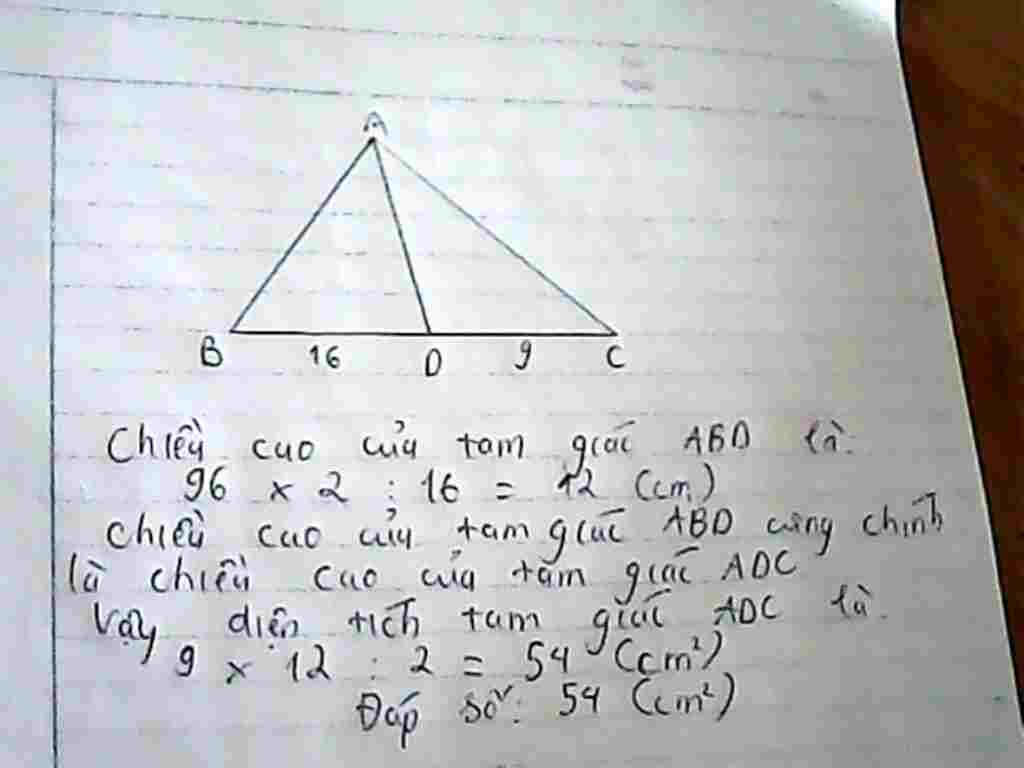 A
B 16 D 9 C
Chiều cao của tam giác ABD là:
96 x 2 : 16 = 12 (cm)
Chiều cao của tam giác ABD cũng chính
là chiều cao của tam giác ADC
Vậy diện tích tam giác ADC là:
9 x 12 : 2 = 54 (cm²)
Đáp số: 54 (cm²)